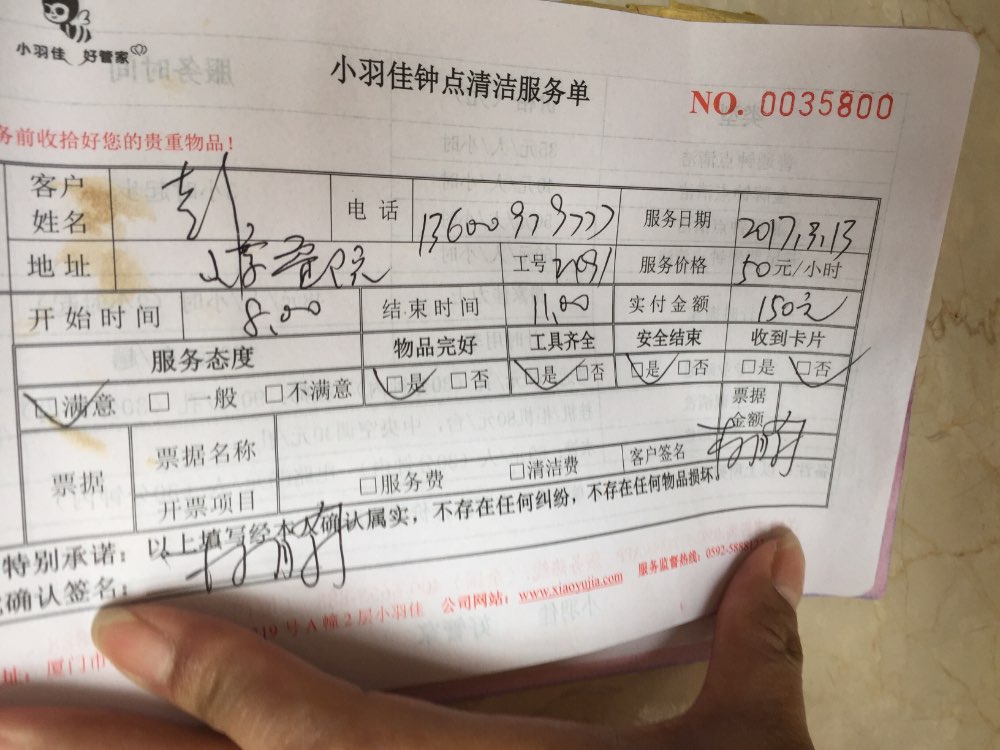 小羽佳 好管家
小羽佳钟点清洁服务单
NO. 0035800
务前收拾好您的贵重物品！
客户姓名 电话 服务日期 2017.3.13
地址 工号 2091 服务价格 50元/小时
开始时间 8.00 结束时间 11.00 实付金额 150元
服务态度 物品完好 工具齐全 安全结束 收到卡片
□满意 □一般 □不满意 □是 □否 □是 □否 □是 □否 □是 □否
票据 票据名称 票据金额
开票项目 □服务费 □清洁费 客户签名
特别承诺：以上填写经本人确认属实，不存在任何纠纷，不存在任何物品损坏。
确认签名：
厦门市 19号A幢2层小羽佳 公司网站：www.xiaoyujia.com 服务监督热线：0592-5888